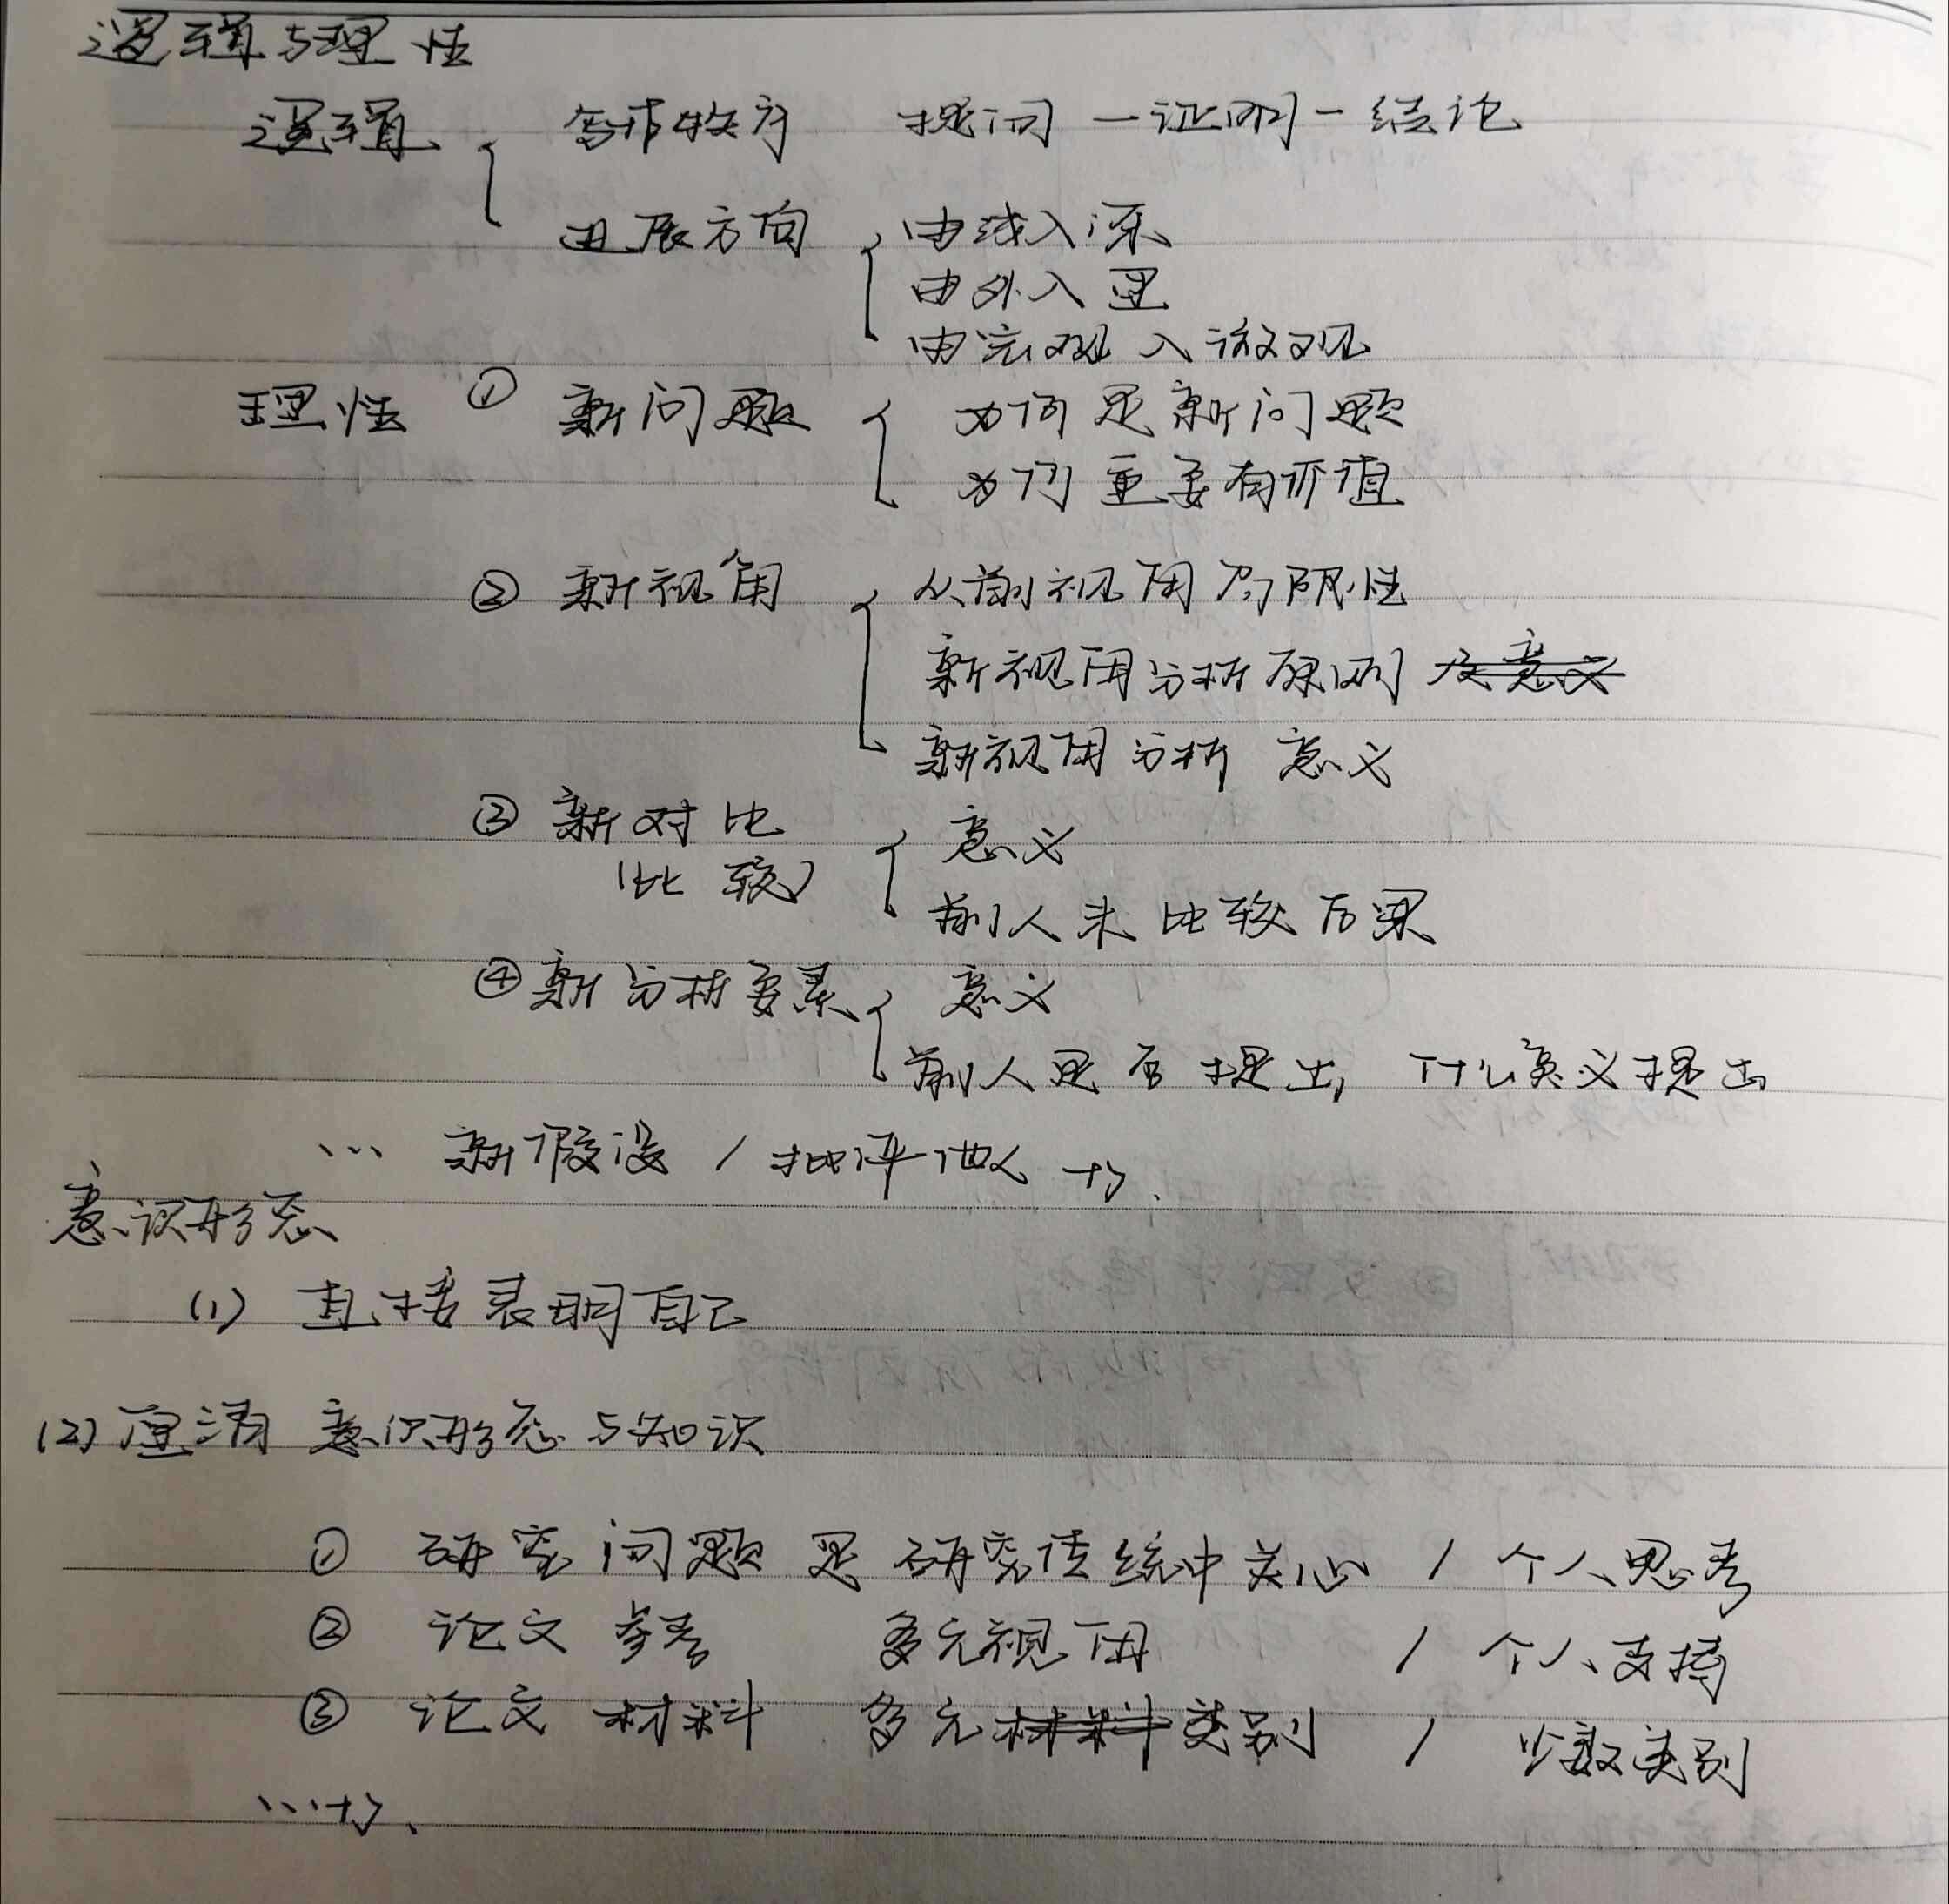 逻辑与理性
逻辑 写作秩序 提问 — 证明 - 结论
进展方向 由浅入深
由外入里
由宏观入微观
理性 ① 新问题 为何是新问题
为何重要有价值
② 新视角 从前视角局限性
新视角分析原因 及意义
新视角分析 意义
③ 新对比 意义
(比较)
前人未比较后果
④ 新分析要素 意义
前人是否提出, 什么意义提出
... 新假设 / 批评他人
意识形态
(1) 直接表明自己
(2) 厘清 意识形态与知识
① 研究问题 是 研究传统中关心 / 个人思考
② 论文 参考 多元视角 / 个人支持
③ 论文 材料 多元材料类别 / 少数类别
...